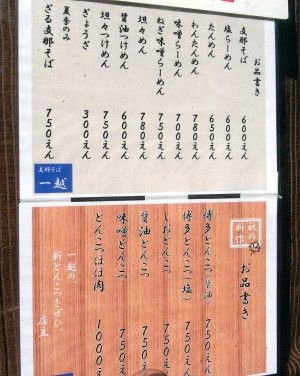 お品書き
支那そば 600えん
塩らーめん 600えん
たんめん 650えん
わんたんめん 780えん
味噌らーめん 700えん
ねぎ味噌らーめん 750えん
坦々めん 780えん
醤油つけめん 600えん
坦々つけめん 750えん
ぎょうざ 300えん
夏季のみ
ざる支那そば 750えん
支那そば
一越
秋の新作
お品書き
博多とんこつ醤油 750えん
博多とんこつ(塩) 750えん
しおとんこつ 750えん
醤油とんこつ 750えん
味噌とんこつ 750えん
とんこつほほ肉 1000えん
一越の
新とんこつをぜひ、
店主